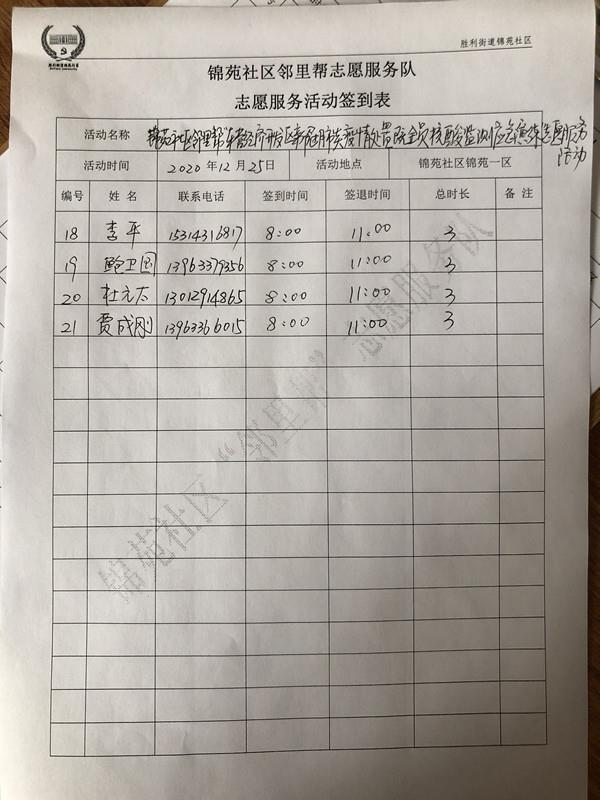 胜利街道锦苑社区
锦苑社区邻里帮志愿服务队
志愿服务活动签到表
活动名称 锦苑社区邻里帮 经济开发区新冠肺炎疫情处置暨全员核酸监测应急演练志愿服务
活动
活动时间 2020年12月25日 活动地点 锦苑社区锦苑一区
编号 姓名 联系电话 签到时间 签退时间 总时长 备注
18 李平 15314316817 8:00 11:00 3
19 鲍卫国 13963379356 8:00 11:00 3
20 杜元太 13012914865 8:00 11:00 3
21 贾成刚 13963366015 8:00 11:00 3
锦苑社区“邻里帮”志愿服务队